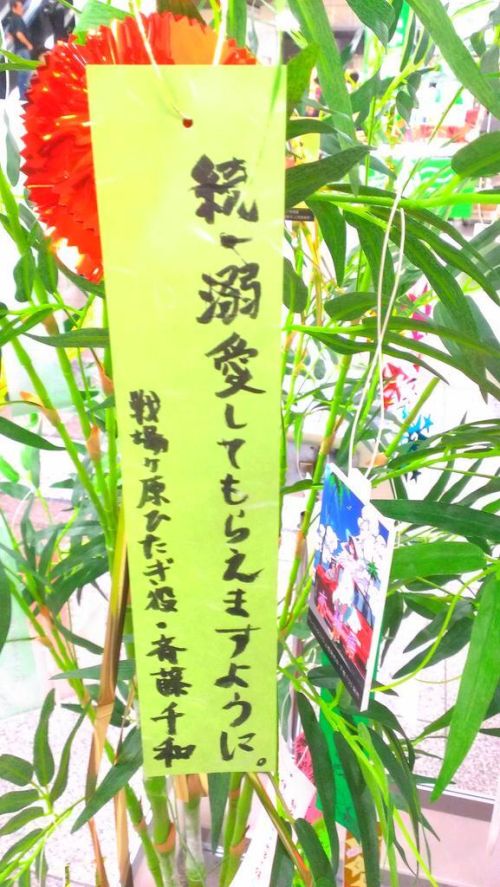 続・溺愛してもらえますように。
戦場ヶ原ひたぎ役・斉藤千和